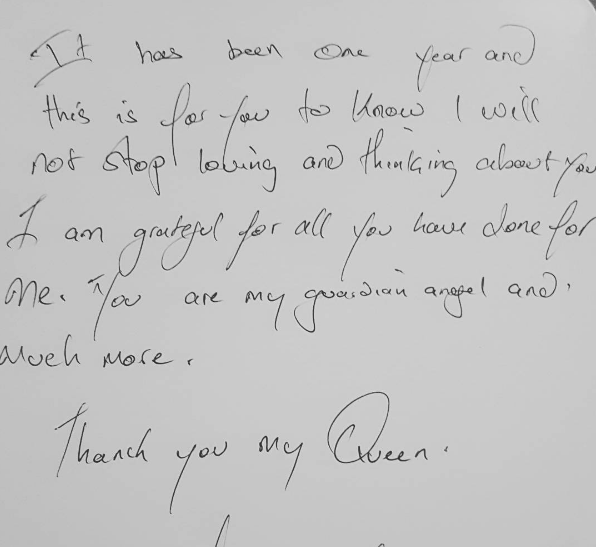 It has been one year and
this is for you to know I will
not stop loving and thinking about you
I am grateful for all you have done for
me. You are my guardian angel and
much more.
Thanck you my Queen.